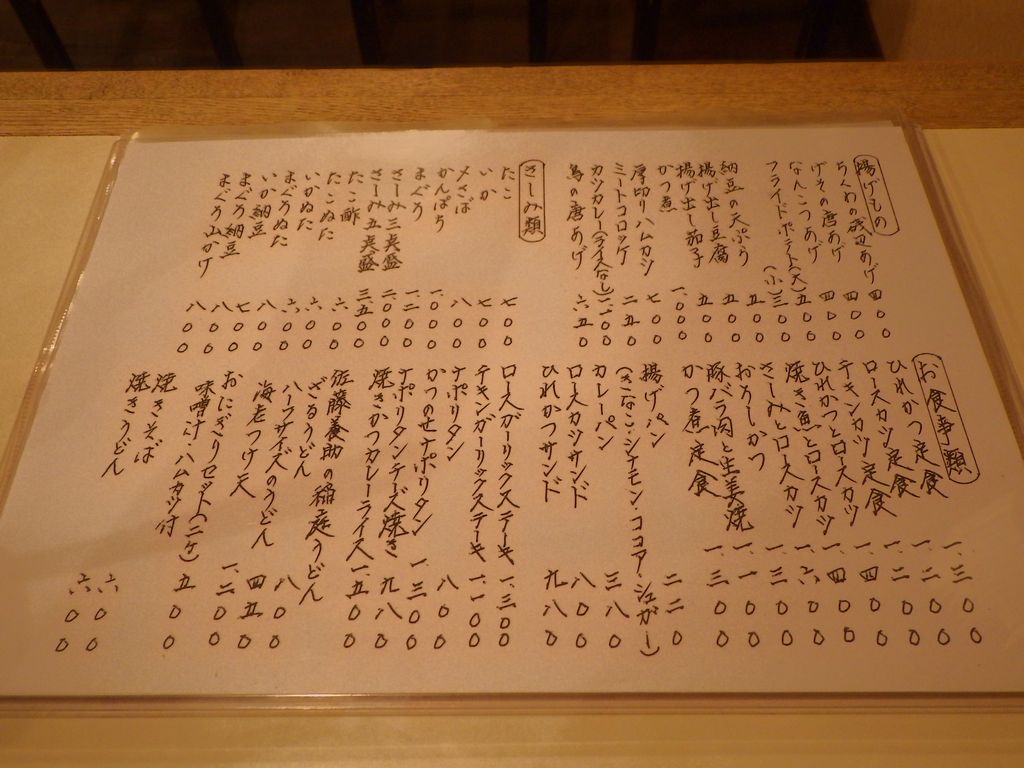 揚げもの
ちくわの磯辺あげ 四〇〇
げその唐あげ 四〇〇
なんこつあげ 四〇〇
フライドポテト(大) 五〇〇
(小) 三〇〇
納豆の天ぷら 五〇〇
揚げ出し豆腐 五〇〇
揚げ出し茄子 五〇〇
かつ煮 一、〇〇〇
厚切りハムカツ 七〇〇
ミートコロッケ 二五〇
カツカレー(ライスなし)
鳥の唐あげ 六五〇
さしみ類
たこ 七〇〇
いか 七〇〇
〆さば 八〇〇
かんぱち 一、〇〇〇
まぐろ 一、二〇〇
さしみ三点盛 二、〇〇〇
さしみ五点盛 三、五〇〇
たこ酢 六〇〇
たこぬた 六〇〇
いかぬた 六〇〇
まぐろぬた 八〇〇
いか納豆 七〇〇
まぐろ納豆 八〇〇
まぐろ山かけ 八〇〇
お食事類
ひれかつ定食 一、三〇〇
ロースカツ定食 一、二〇〇
チキンカツ定食 一、二〇〇
ひれかつとロースカツ 一、四〇〇
焼き魚とロースカツ 一、四〇〇
さしみとロースカツ 一、六〇〇
おろしかつ 一、三〇〇
豚バラ肉と生姜焼 一、一〇〇
かつ煮定食 一、三〇〇
揚げパン 二二〇
(きなこ・シナモン・ココア・シュガー)
カレーパン 三八〇
ロースカツサンド 八〇〇
ひれかつサンド 九八〇
ロースガーリックステーキ 一、三〇〇
チキンガーリックステーキ 一、一〇〇
ナポリタン 八〇〇
かつのせナポリタン 一、三〇〇
ナポリタンチーズ焼き 九八〇
焼きかつカレーライス 一、五〇〇
佐藤養助の稲庭うどん
ざるうどん 八〇〇
ハーフサイズのうどん 四五〇
海老つけ天 一、二〇〇
おにぎりセット(二ケ) 五〇〇
味噌汁・ハムカツ付
焼きそば 六〇〇
焼きうどん 六〇〇